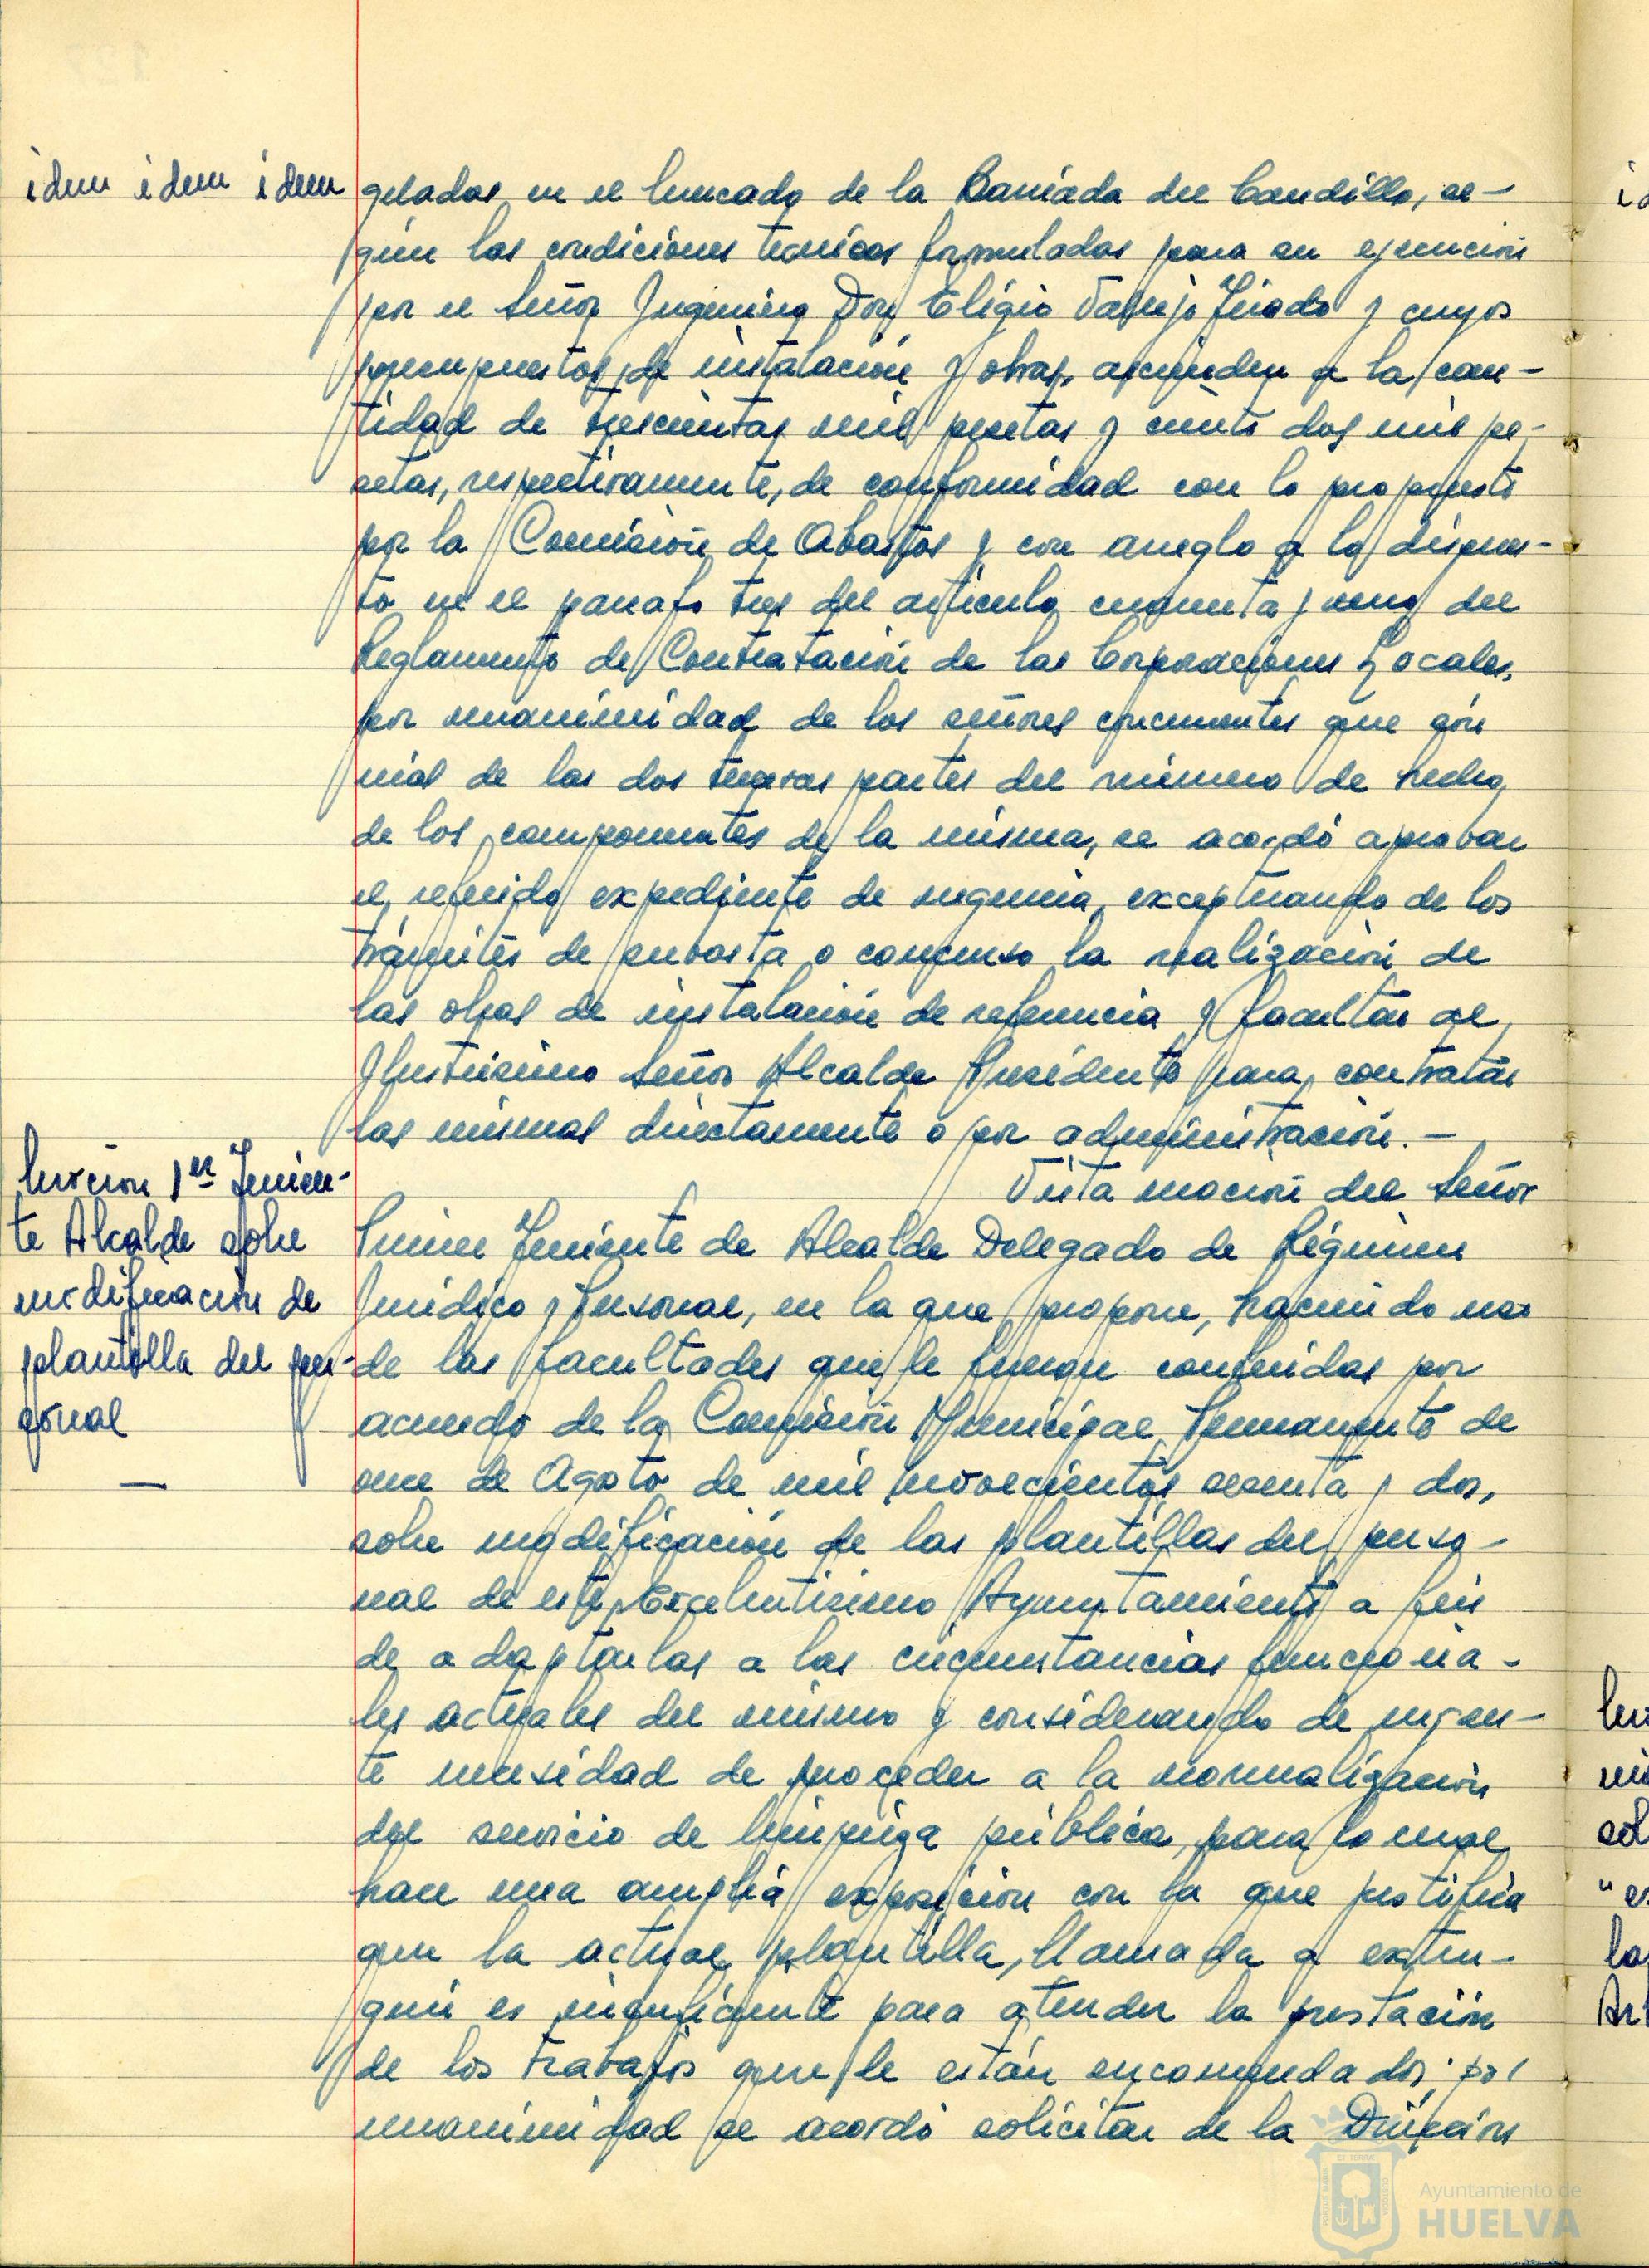 idem idem idem
gelados, en el Mercado de la Barriada del Caudillo, se-
gún las condiciones tecnicas formuladas para su ejecución
por el Señor Ingeniero Don Eligio y cuyos
presupuestos de instalación y obras, ascienden a la can-
tidad de trescientas mil pesetas y ciento dos mil pe-
setas, respectivamente, de conformidad con lo propuesto
por la Comisión de Abastos y con arreglo a lo dispues-
to en el parrafo tres del artículo cuarenta y uno del
Reglamento de Contratación de las Corporaciones Locales,
por unanimidad de los señores concurrentes que son
más de las dos terceras partes del número de hecho
de los componentes de la misma, se acordó aprobar
el referido expediente de urgencia, exceptuando de los
trámites de subasta o concurso la realización de
las obras de instalación de referencia y facultar al
Ilustrisimo Señor Alcalde Presidente para contratar
las mismas directamente o por administración.—
Moción 1er Tenien-
te Alcalde sobre
modificación de
plantilla del per-
sonal
Vista moción del Señor
Primer Teniente de Alcalde Delegado de Régimen
Jurídico y Personal, en la que propone, haciendo uso
de las facultades que le fueron conferidas por
acuerdo de la Comisión Municipal Permanente de
once de Agosto de mil novecientos sesenta y dos,
sobre modificación de las plantillas del perso-
nal de este Excelentisimo Ayuntamiento a fin
de adaptarlas a las circunstancias funciona-
les actuales del mismo y considerando de urgen-
te necesidad de proceder a la normalización
del servicio de limpieza pública, para lo cual
hace una amplia exposición con la que justifica
que la actual plantilla, llamada a extin-
guir es insuficiente para atender la prestación
de los trabajos que le están encomendados; por
unanimidad se acordó solicitar de la Dirección
Ayuntamiento de
HUELVA